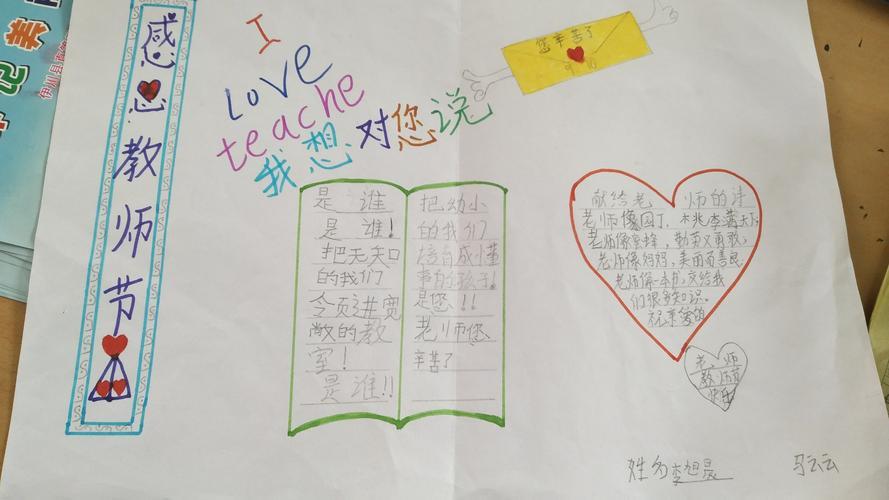 感恩教师节
I
Love
teache
我想对您说
您辛苦了
是谁
是谁！
把无知
的我们
领进宽
敞的教
室！
是谁！！
把幼小
的我们
培育成懂
事的孩子！
是您！！
老师您
辛苦了
献给老师的诗
老师像园丁，桃李满天下；
老师像蜜蜂，勤劳又勇敢；
老师像妈妈，美丽而善良；
老师像一本书，交给我
们很多知识。
祝亲爱的
老师
教师节
快乐
姓名李旭晨
马云云